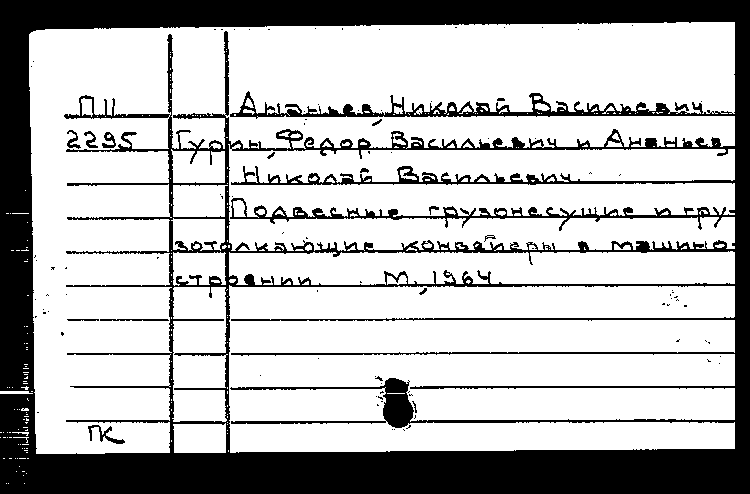 П11 Ананьев, Николай Васильевич.
2295 Гурин, Федор Васильевич и Ананьев,
Николай Васильевич.
Подвесные грузонесущие и гру-
зотолкающие конвейеры в машино-
строении. М., 1964.
ПК